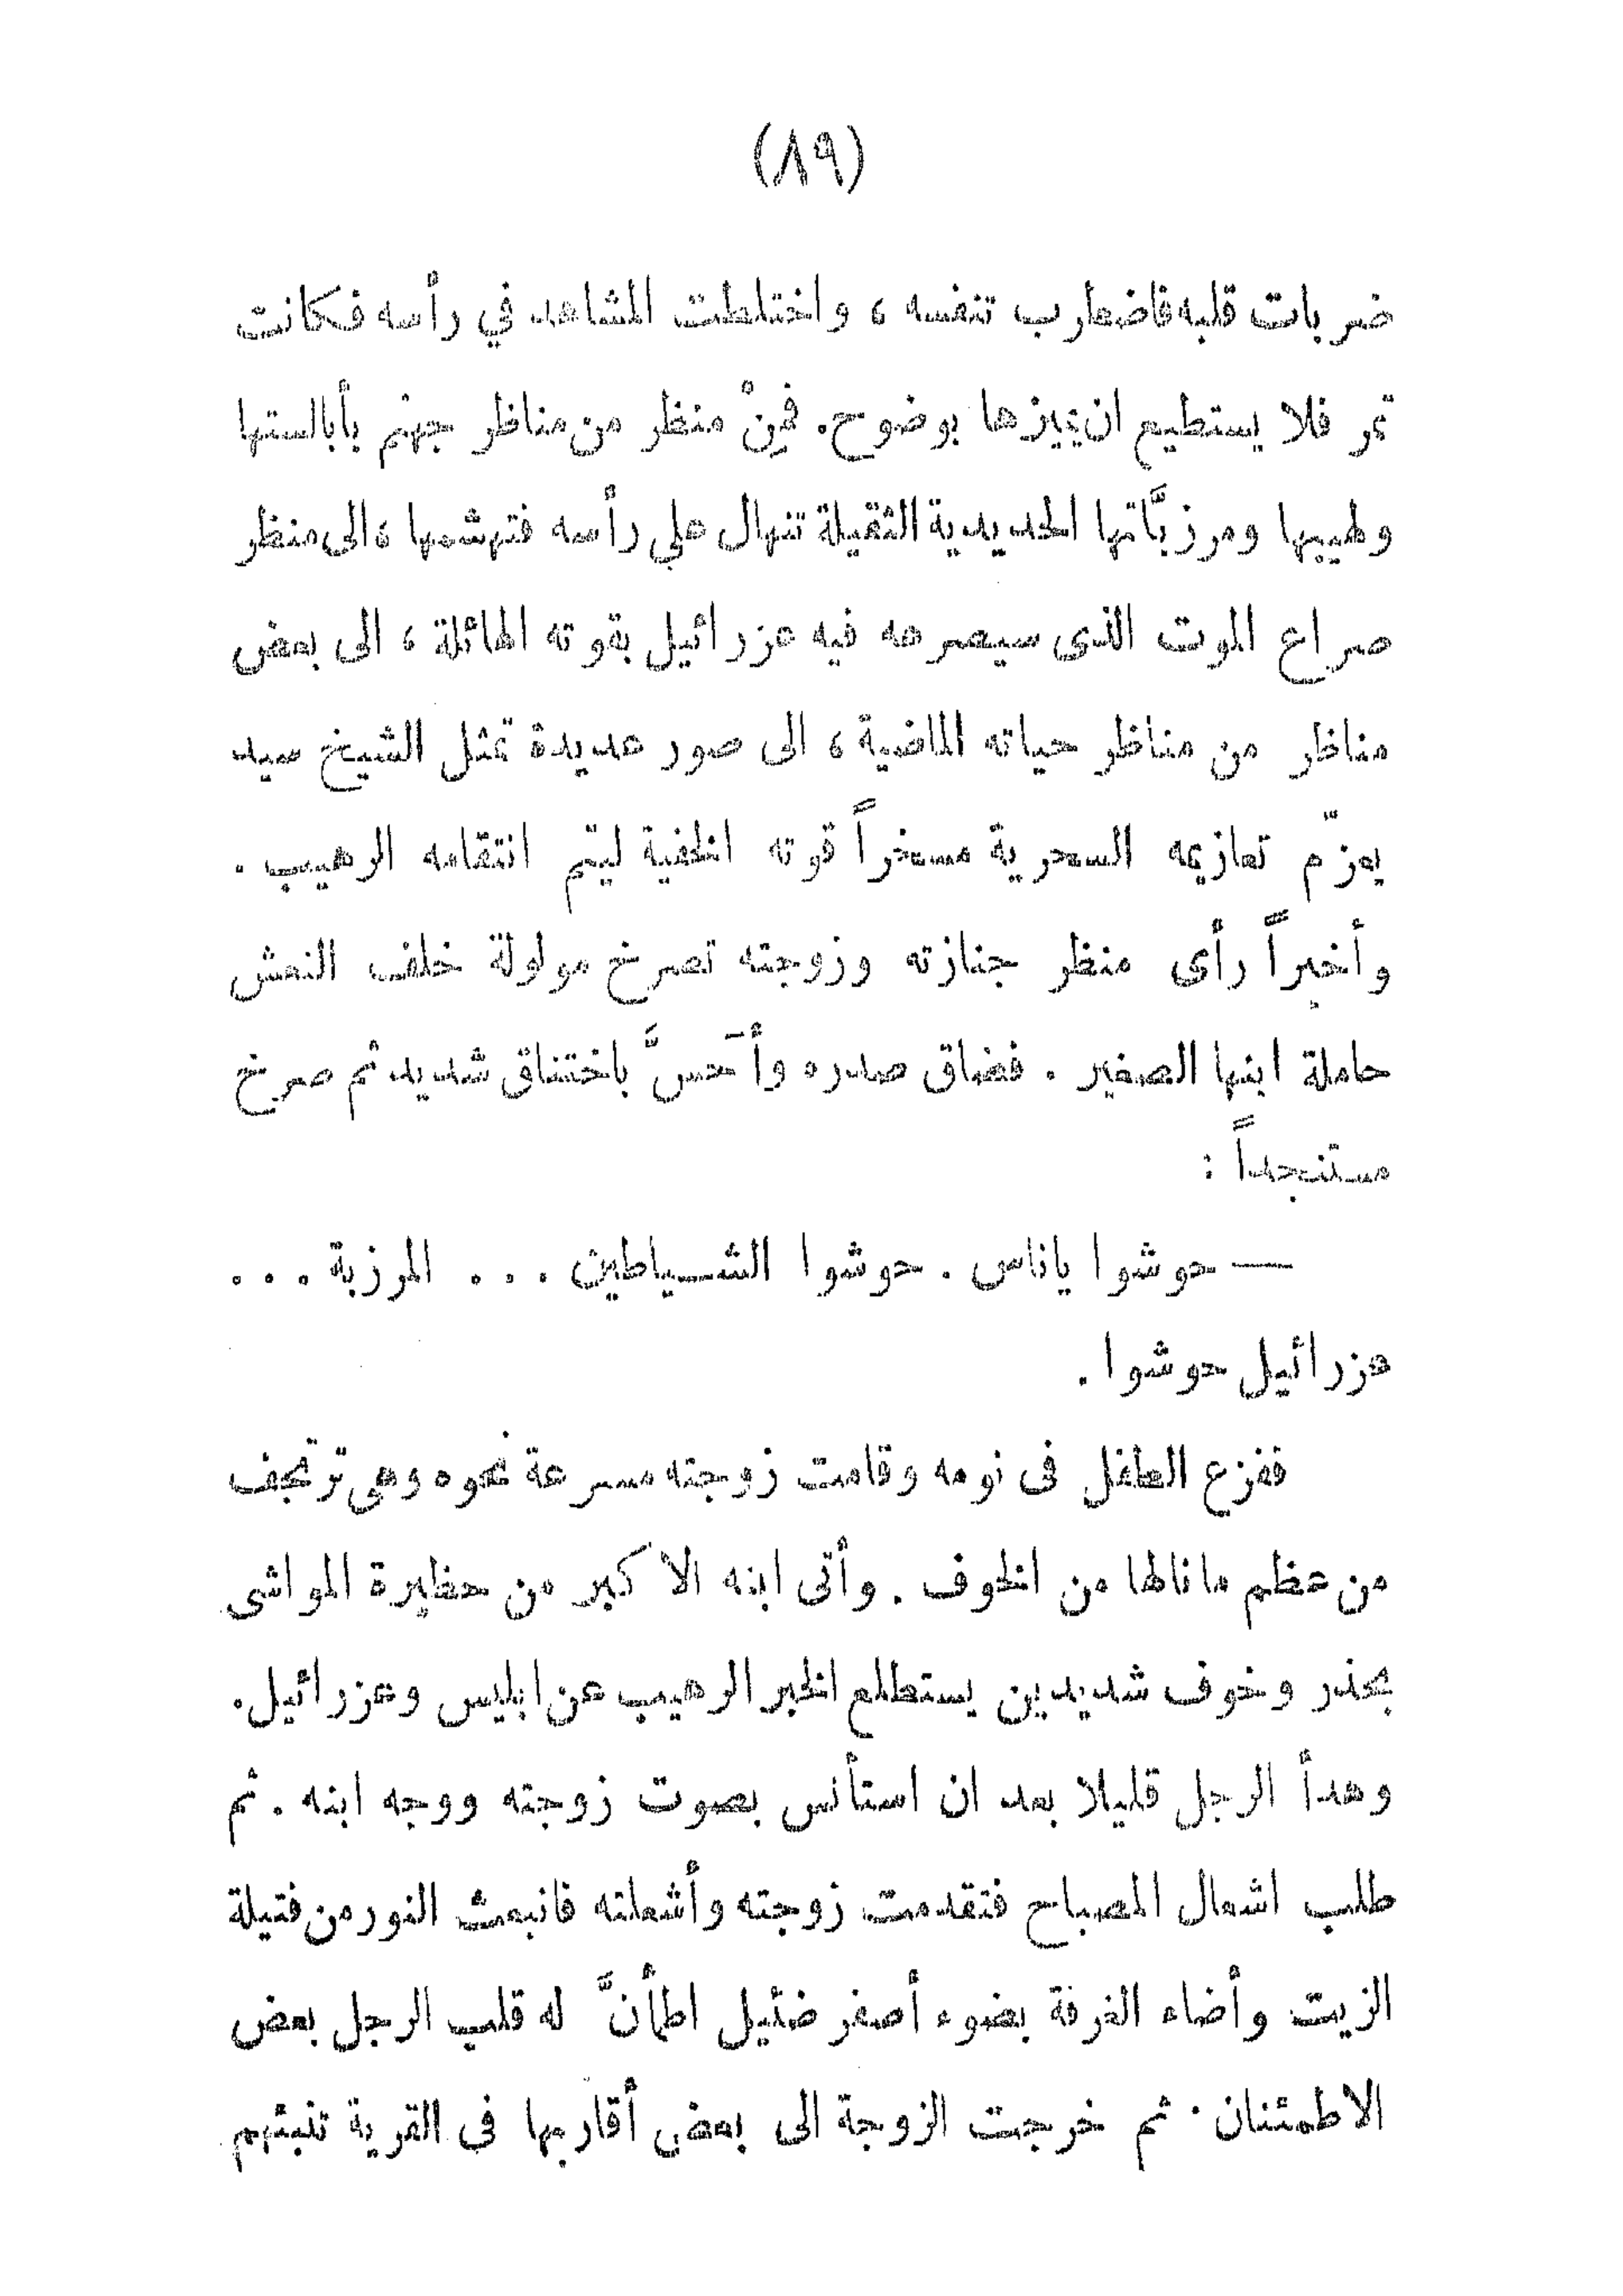 (٨٩)
ضربات قلبه فاضطرب تنفسه ، واختلطت المشاهد في رأسه فكانت
تمر فلا يستطيع ان يميزها بوضوح. فمِنْ منظر من مناظر جهنم بأبالستها
ولهيبها ومرزبَّاتها الحديدية الثقيلة تنهال على رأسه فتهشمها ، الى منظر
صراع الموت الذى سيصرعه فيه عزرائيل بقوته الهائلة ، الى بعض
مناظر من مناظر حياته الماضية ، الى صور عديدة تمثل الشيخ سيد
يعزّم تعازيمه السحرية مسخراً قوته الخفية ليتم انتقامه الرهيب .
وأخيراً رأى منظر جنازته وزوجته تصرخ مولولة خلف النعش
حاملة ابنها الصغير . فضاق صدره وأَحسَّ باختناق شديد ثم صرخ
مستنجداً :
— حوشوا ياناس . حوشوا الشياطين ... المرزبة ...
عزرائيل حوشوا .
ففزع الطفل فى نومه وقامت زوجته مسرعة نحوه وهى ترتجف
من عظم ما نالها من الخوف . وأتى ابنه الاكبر من حظيرة المواشى
بحذر وخوف شديدين يستطلع الخبر الرهيب عن ابليس وعزرائيل.
وهدأ الرجل قليلا بعد ان استأنس بصوت زوجته ووجه ابنه . ثم
طلب اشعال المصباح فتقدمت زوجته وأشعلته فانبعث النور من فتيلة
الزيت وأضاء الغرفة بضوء أصفر ضئيل اطمأنَّ له قلب الرجل بعض
الاطمئنان . ثم خرجت الزوجة الى بعض أقاربها فى القرية تنبئهم